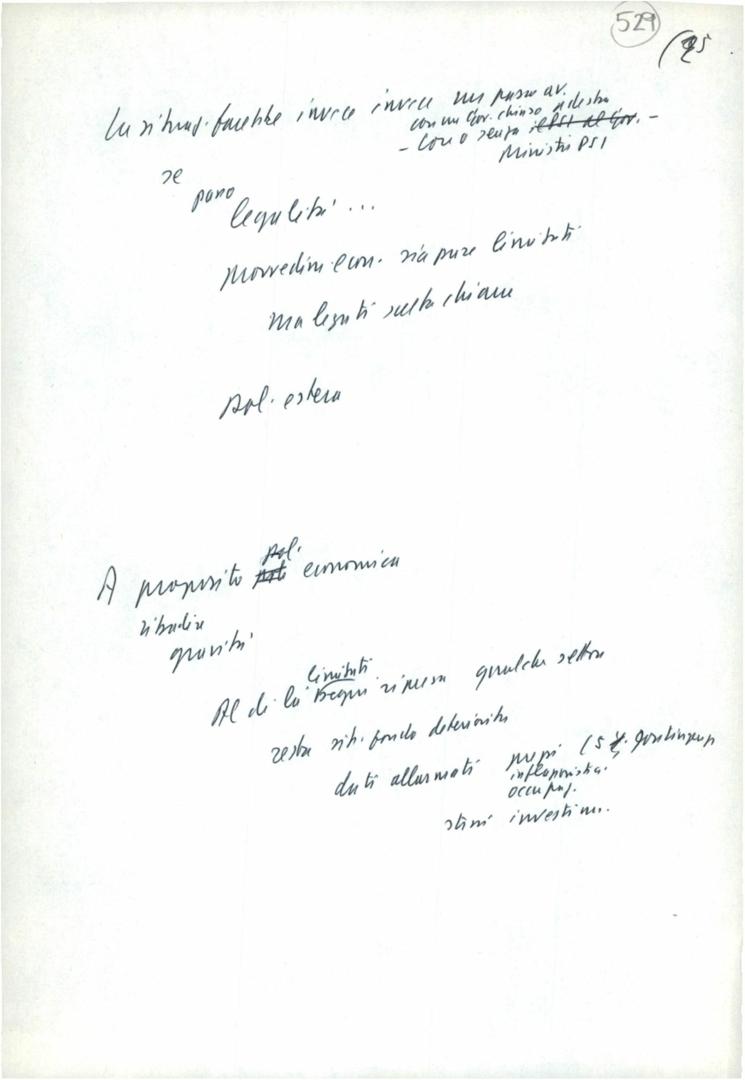 529
La situaz. farebbe invece invece un passo av.
con un Gov. chiuso a destra
- Con o senza il PSI al Gov. -
Ministri PSI
se
passo
legalità ...
provvedim. econ. sia pure limitati
ma legati scelta chiare
pol. estera
A proposito pol. economica
ribadire
gravità
limitati
Al di là segni ripresa qualche settore
resta sit. fondo deteriorata
dati allarmati prezzi (5 p. contingenza
inflazionistica.
occupaz.
investim.